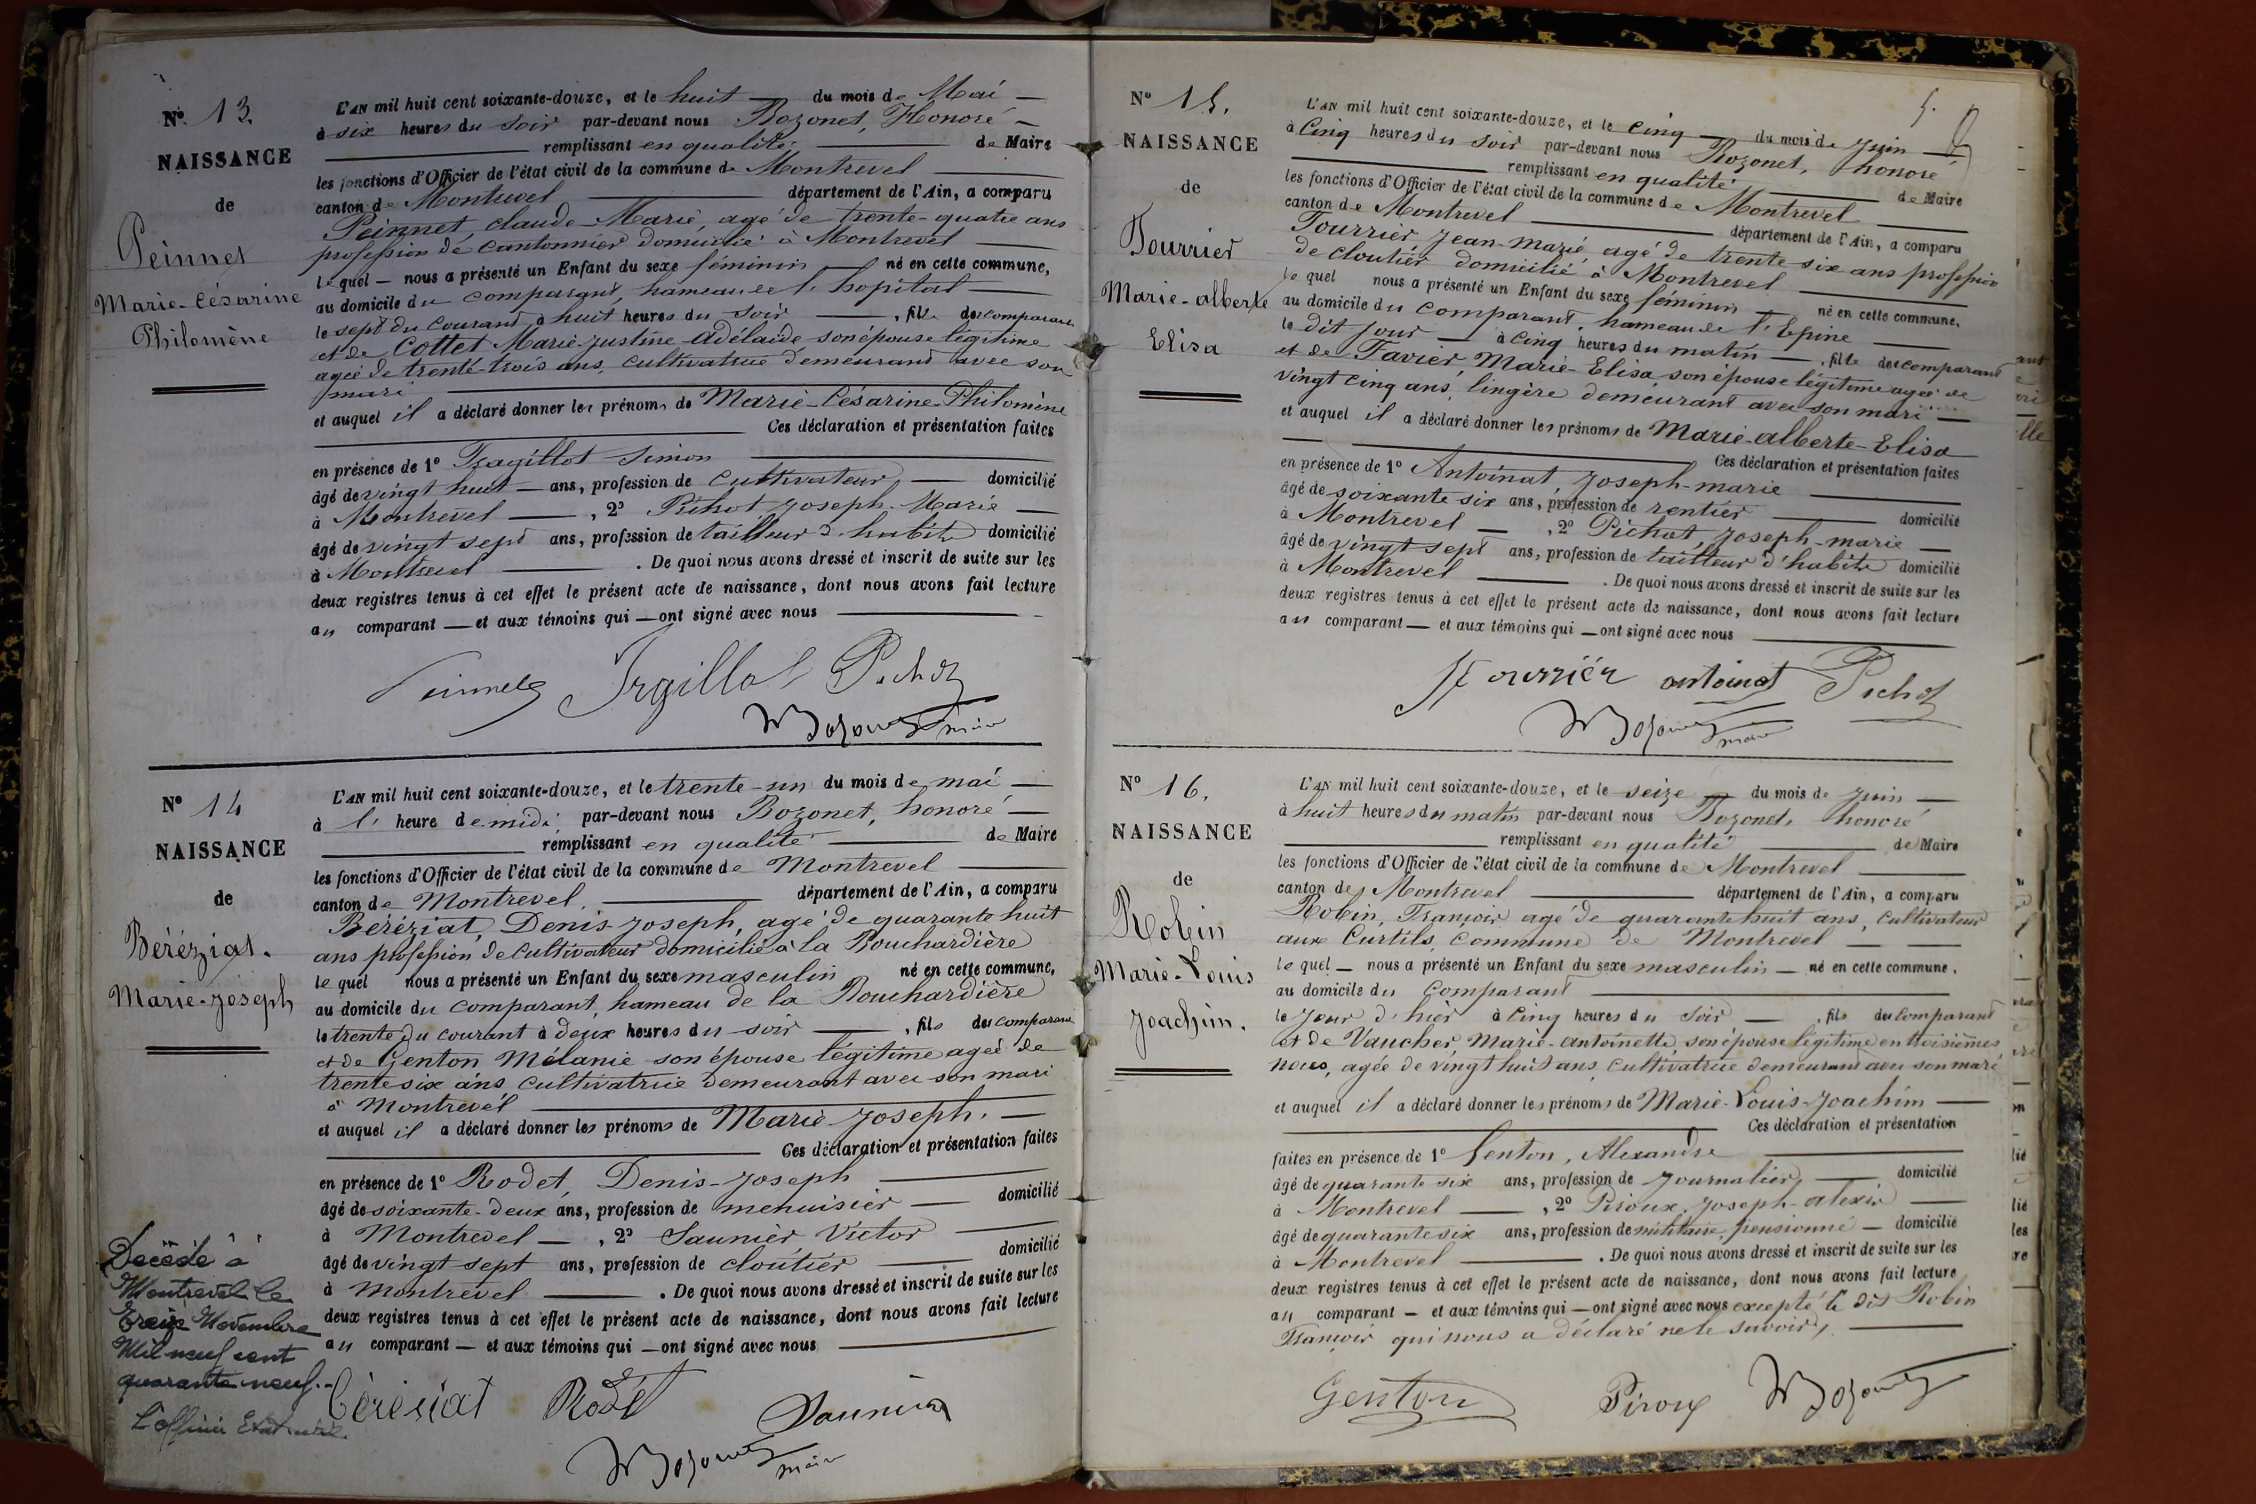 Nº 13.
NAISSANCE
de
Peinnet
Marie-Césarine
Philomène
L'AN mil huit cent soixante-douze, et le huit — du mois de Mai —
à six heures du soir par-devant nous Bozonet, Honoré —
remplissant en qualité — de Maire
les fonctions d'Officier de l'état civil de la commune de Montrevel
canton de Montrevel — département de l'Ain, a comparu
Peinnet, claude-Marie, agé de trente-quatre ans
profession de cantonnier domicilié à Montrevel —
le quel — nous a présenté un Enfant du sexe féminin — né en cette commune,
au domicile du comparant, hameau de l'hopital —
le sept du courant à huit heures du soir — , fille du comparant
et de Cottet Marie-Justine-Adélaïde son épouse légitime
agée de trente-trois ans, cultivatrice demeurant avec son
mari —
et auquel il a déclaré donner les prénoms de Marie-Césarine-Philomène
Ces déclaration et présentation faites
en présence de 1º Fragillot Simon —
âgé de vingt huit — ans, profession de cultivateur — domicilié
à Montrevel — , 2º Pichot, Joseph-Marie —
âgé de vingt sept ans, profession de tailleur d'habits domicilié
à Montrevel — . De quoi nous avons dressé et inscrit de suite sur les
deux registres tenus à cet effet le présent acte de naissance, dont nous avons fait lecture
au comparant — et aux témoins qui — ont signé avec nous —
Peinnet Pichot
Bozonet maire
Nº 14
NAISSANCE
de
Béréziat.
Marie-Joseph
L'AN mil huit cent soixante-douze, et le trente-un du mois de mai —
à l' heure de midi par-devant nous Bozonet, honoré —
remplissant en qualité — de Maire
les fonctions d'Officier de l'état civil de la commune de Montrevel —
canton de Montrevel. — département de l'Ain, a comparu
Béréziat, Denis-Joseph, agé de quarante huit
ans profession de cultivateur domicilié à la Bouchardière
le quel nous a présenté un Enfant du sexe masculin né en cette commune,
au domicile du comparant, hameau de la Bouchardière
le trente du courant à deux heures du soir — , fils du comparant
et de Genton Mélanie son épouse légitime agée de
trente six ans cultivatrice demeurant avec son mari
à Montrevel —
et auquel il a déclaré donner les prénoms de Marie-Joseph. —
Ces déclaration et présentation faites
en présence de 1º Rodet, Denis-Joseph —
âgé de soixante-deux ans, profession de menuisier — domicilié
à Montrevel — , 2º Saunier Victor —
âgé de vingt sept ans, profession de cloutier — domicilié
à Montrevel — . De quoi nous avons dressé et inscrit de suite sur les
deux registres tenus à cet effet le présent acte de naissance, dont nous avons fait lecture
au comparant — et aux témoins qui — ont signé avec nous —
Décédé à
Montrevel le
treize Novembre
Mil neuf cent
quarante neuf.
L'officier Etat civil
Béréziat Rodet Saunier
Bozonet maire
5.
Nº 15.
NAISSANCE
de
Tourrier
Marie-alberte
Elisa
L'AN mil huit cent soixante-douze, et le cinq — du mois de Juin —
à Cinq heures du soir par-devant nous Bozonet, honoré
remplissant en qualité — de Maire
les fonctions d'Officier de l'état civil de la commune de Montrevel —
canton de Montrevel — département de l'Ain, a comparu
Tourrier Jean-Marie, agé de trente six ans profession
de cloutier domicilié à Montrevel —
le quel nous a présenté un Enfant du sexe féminin — né en cette commune,
au domicile du comparant, hameau de l'Epine —
le dit jour — à cinq heures du matin — , fille du comparant
et de Favier, Marie-Elisa, son épouse légitime agée de
vingt cinq ans, lingère demeurant avec son mari —
et auquel il a déclaré donner les prénoms de Marie-alberte-Elisa
Ces déclaration et présentation faites
en présence de 1º Antoinat, Joseph-marie —
âgé de soixante six ans, profession de rentier — domicilié
à Montrevel — , 2º Pichot, Joseph-marie —
âgé de vingt sept ans, profession de tailleur d'habits domicilié
à Montrevel — . De quoi nous avons dressé et inscrit de suite sur les
deux registres tenus à cet effet le présent acte de naissance, dont nous avons fait lecture
au comparant — et aux témoins qui — ont signé avec nous —
Tourrier antoinat Pichot
Bozonet maire
Nº 16.
NAISSANCE
de
Robin
Marie-Louis
Joachim.
L'AN mil huit cent soixante-douze, et le seize — du mois de Juin —
à huit heures du matin par-devant nous Bozonet, honoré
remplissant en qualité — de Maire
les fonctions d'Officier de l'état civil de la commune de Montrevel —
canton de Montrevel — département de l'Ain, a comparu
Robin, François agé de quarante huit ans, cultivateur
aux Curtils, commune de Montrevel —
le quel — nous a présenté un Enfant du sexe masculin — né en cette commune,
au domicile du comparant —
le jour d'hier à cinq heures du soir — , fils du comparant
et de Vaucher Marie-antoinette, son épouse légitime en troisièmes
noces, agée de vingt huit ans, cultivatrice demeurant avec son mari
et auquel il a déclaré donner les prénoms de Marie-Louis-Joachim —
Ces déclaration et présentation
faites en présence de 1º Genton, Alexandre —
âgé de quarante six ans, profession de Journalier — domicilié
à Montrevel — , 2º Piroux, Joseph-alexis —
âgé de quarante six ans, profession de militaire, pensionné — domicilié
à Montrevel — . De quoi nous avons dressé et inscrit de suite sur les
deux registres tenus à cet effet le présent acte de naissance, dont nous avons fait lecture
au comparant — et aux témoins qui — ont signé avec nous excepté le dit Robin
François qui nous a déclaré ne le savoir. —
Genton Piroux Bozonet